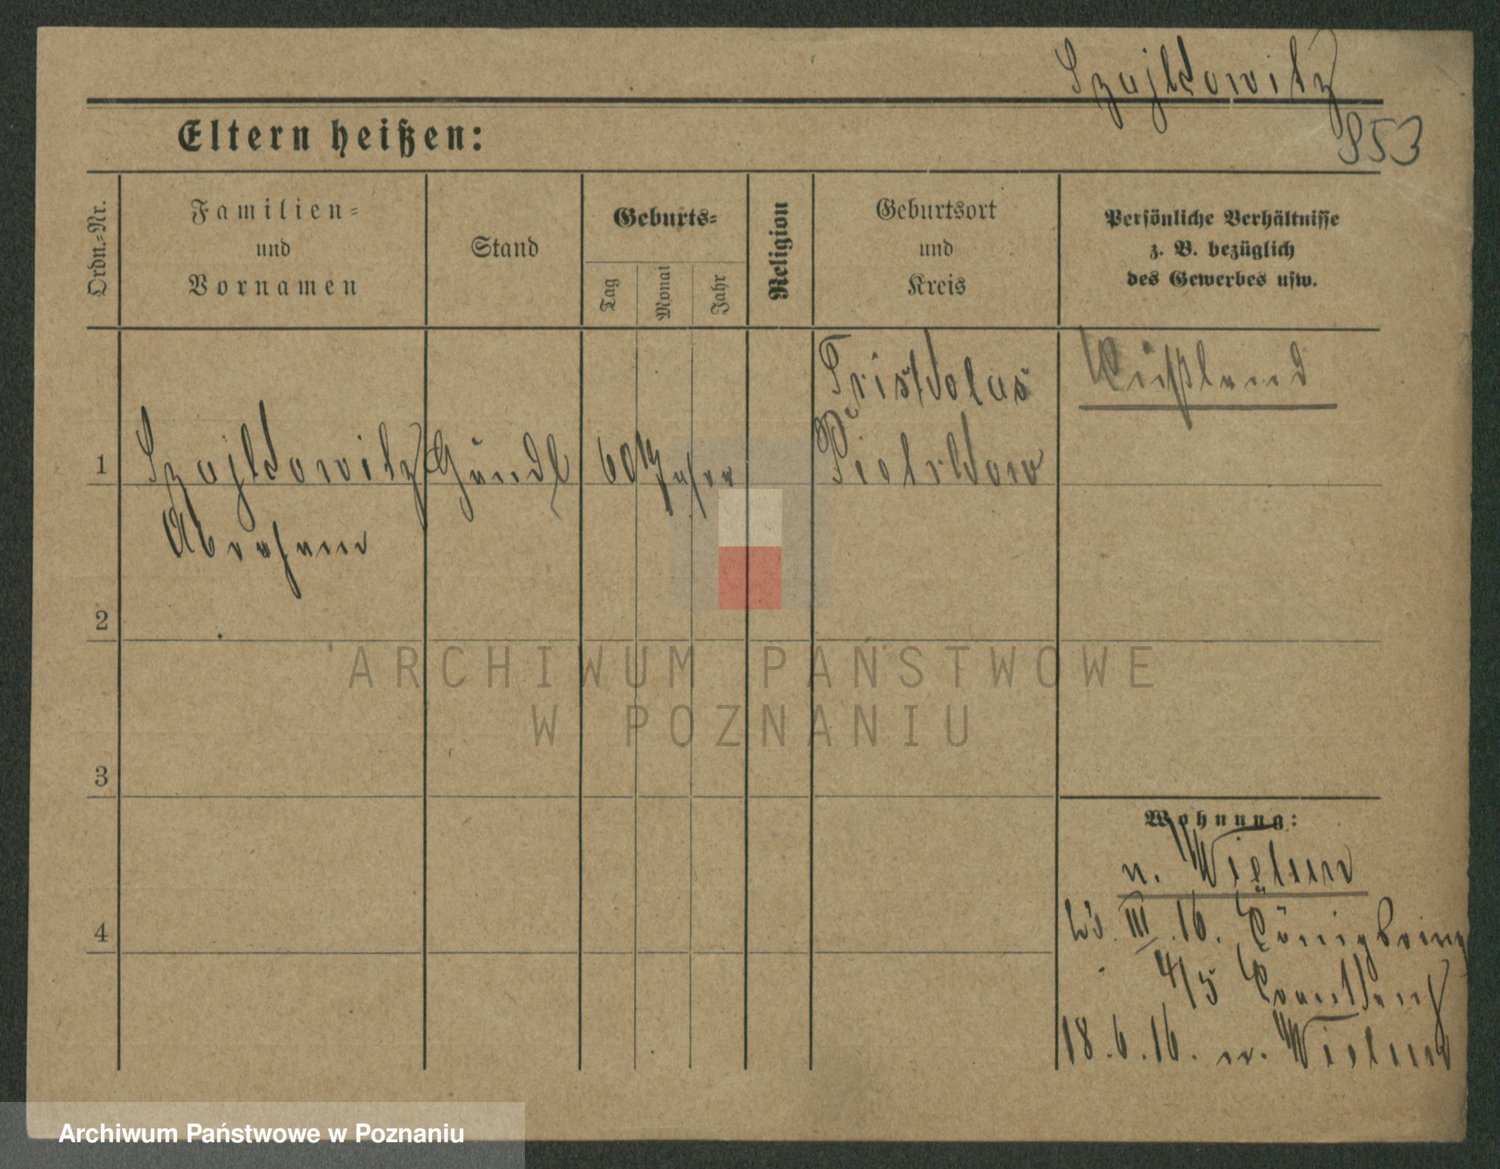 Szajkowitz
853
Eltern heißen:
Ordn.=Nr.
Familien=
und
Vornamen
Stand
Geburts=
Tag
Monat
Jahr
Religion
Geburtsort
und
Kreis
Persönliche Verhältnisse
z. B. bezüglich
des Gewerbes usw.
Rußland
1
Szajkowitz
Abraham
Händl
60 Jahre
2
3
4
Wohnung:
n. Wielun
III. 16. Königsring
4/5 Krankenh
18.6.16. n. Wielun
ARCHIWUM PAŃSTWOWE
W POZNANIU
Archiwum Państwowe w Poznaniu